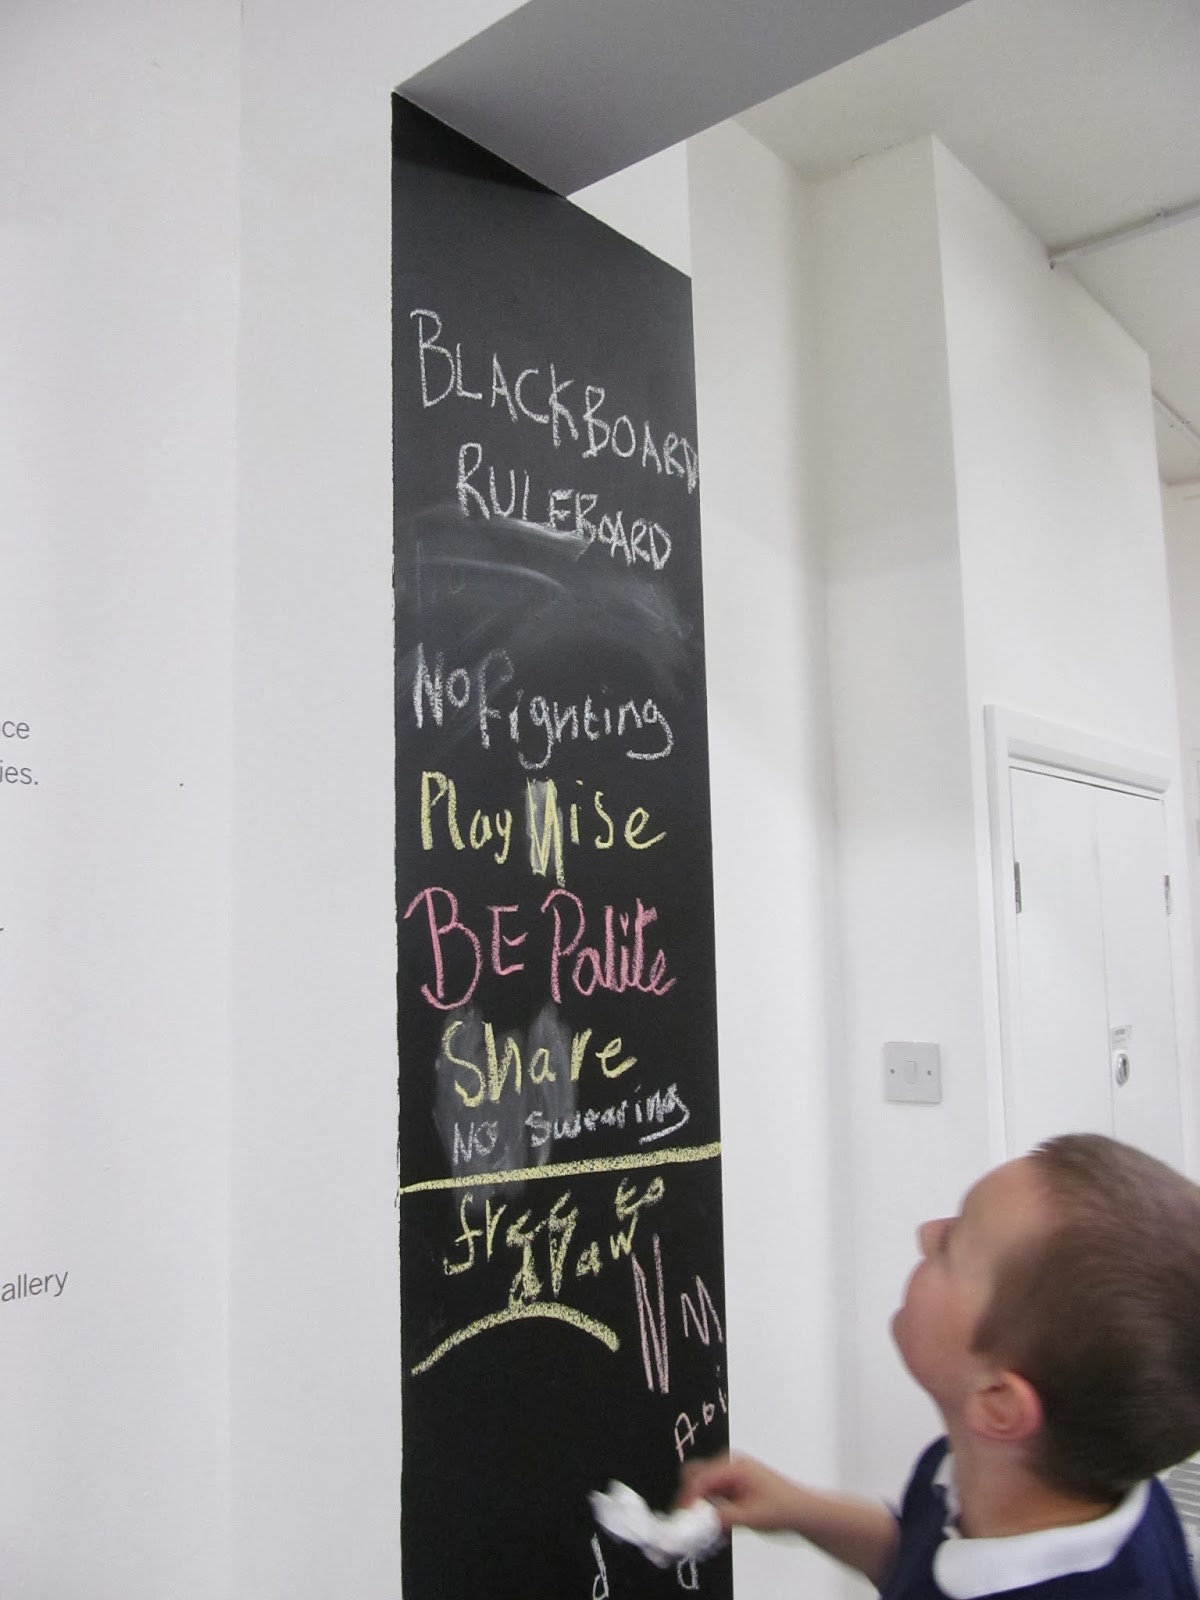 BLACKBOARD
RULEBOARD
No fighting
Play Nise
BE Polite
Share
No swearing
free to
draw
ce
ies.
allery